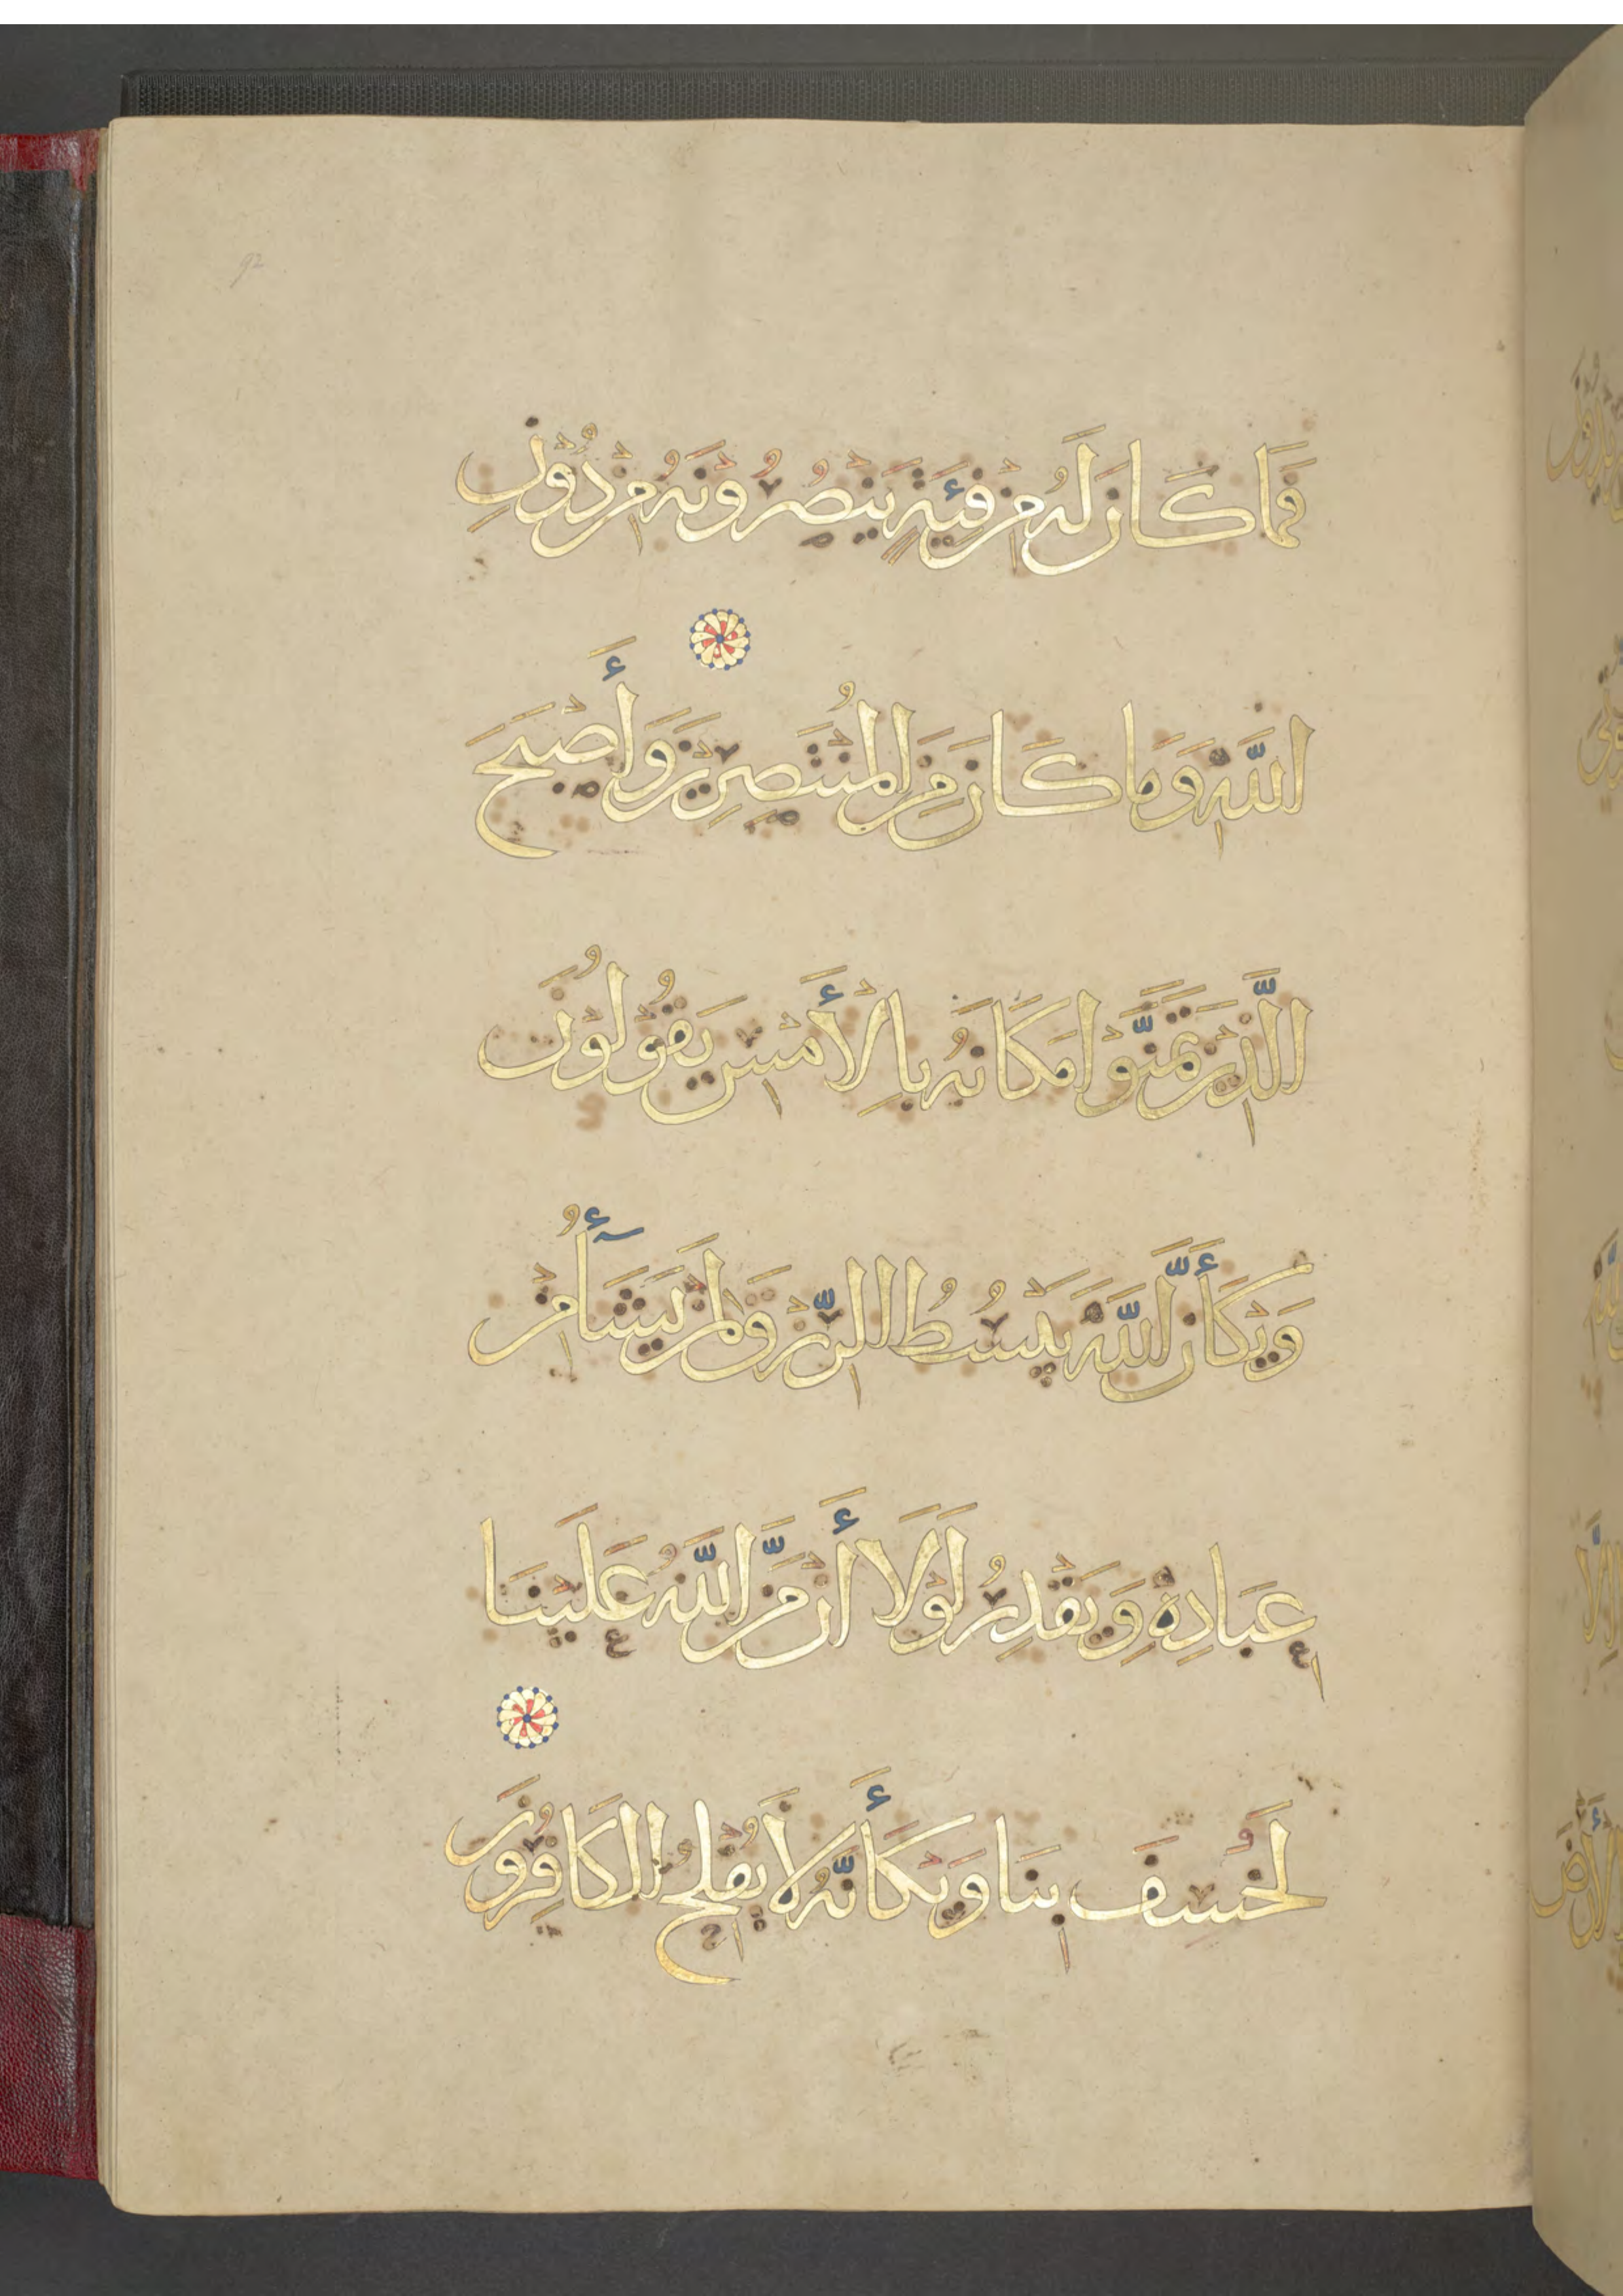 92
فَمَا كَانَ لَهُ مِنْ فِئَةٍ يَنْصُرُوْنَهُ مِنْ دُوْنِ
اللَّهِ وَمَا كَانَ مِنَ الْمُنْتَصِرِيْنَ وَأَصْبَحَ
الَّذِيْنَ تَمَنَّوْا مَكَانَهُ بِالْأَمْسِ يَقُوْلُوْنَ
وَيْكَأَنَّ اللَّهَ يَبْسُطُ الرِّزْقَ لِمَنْ يَشَآءُ مِنْ
عِبَادِهِ وَيَقْدِرُ لَوْلَا أَنْ مَنَّ اللَّهُ عَلَيْنَا
لَخُسِفَ بِنَا وَيْكَأَنَّهُ لَا يُفْلِحُ الْكَافِرُوْنَ